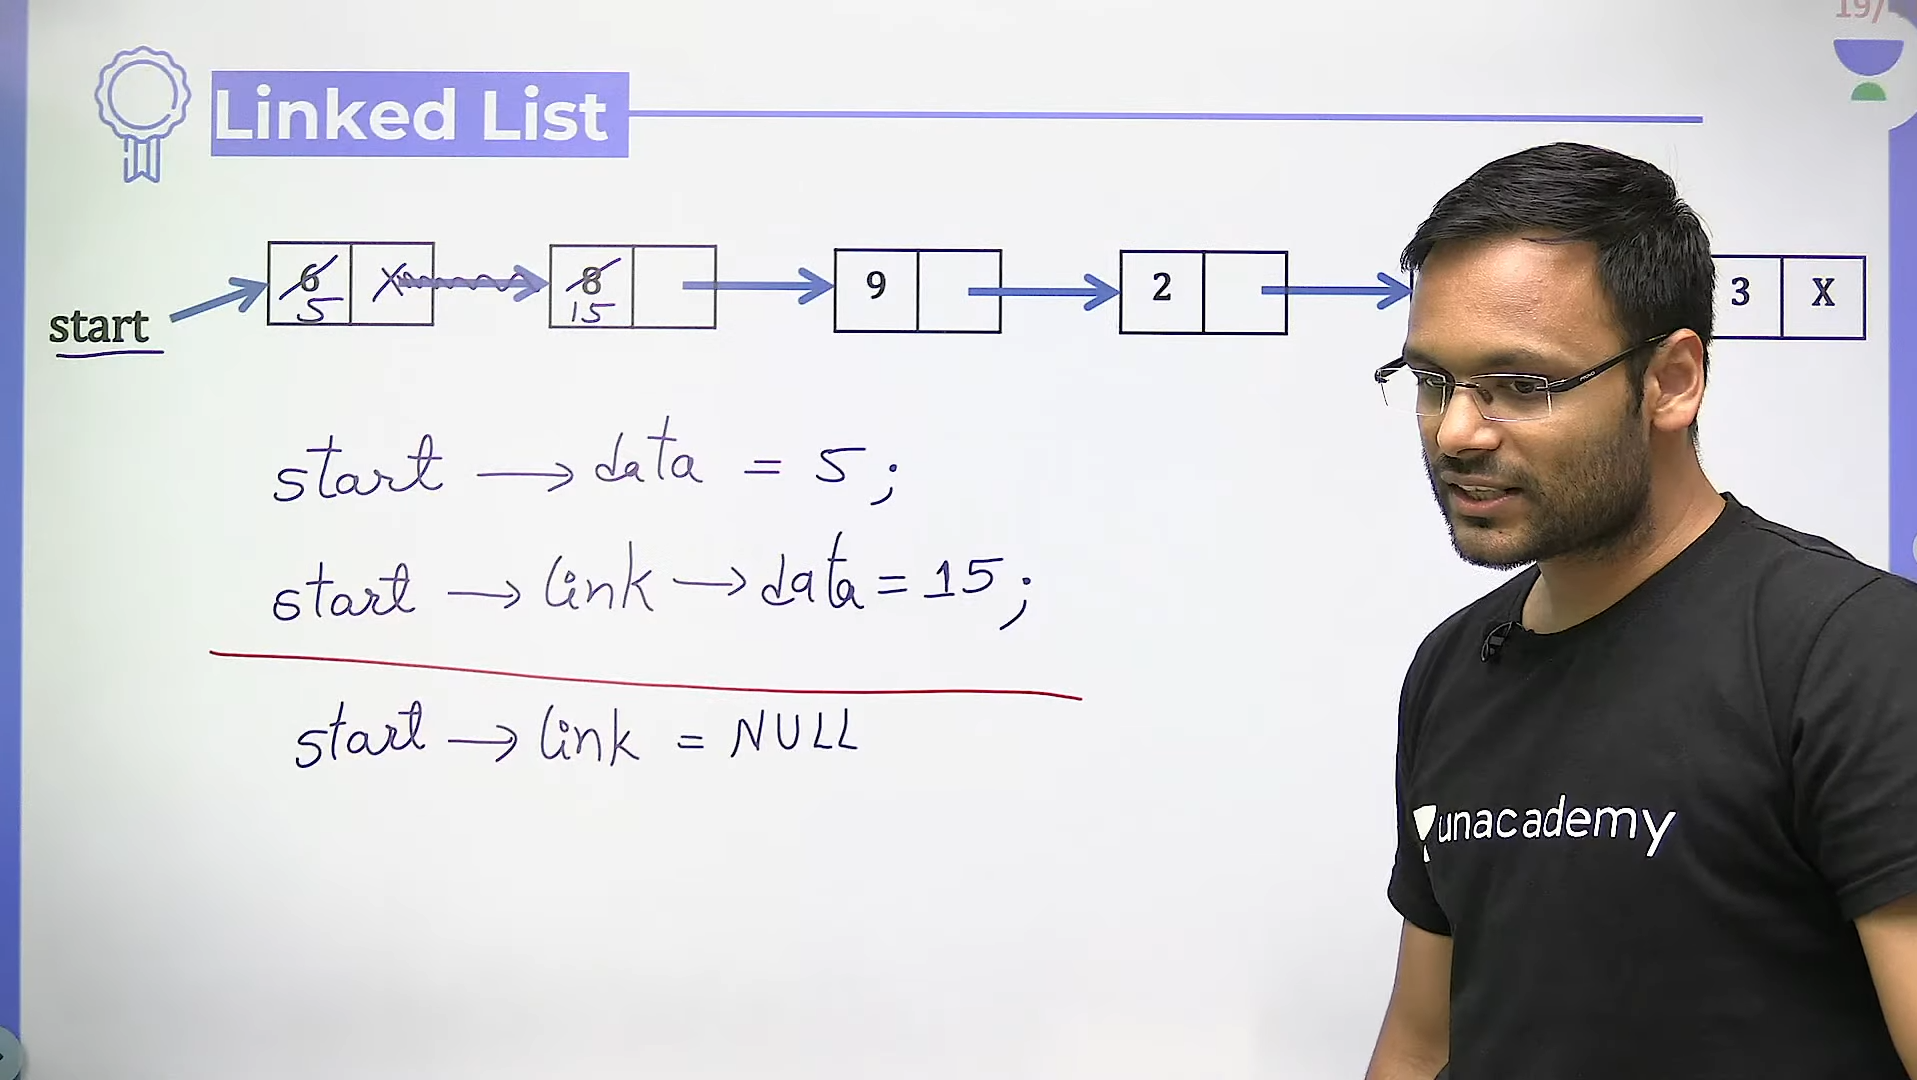 19/
Linked List
start 6 5 X 8 15 9 2 3 X
start → data = 5 ;
start → link → data = 15 ;
start → link = NULL
unacademy